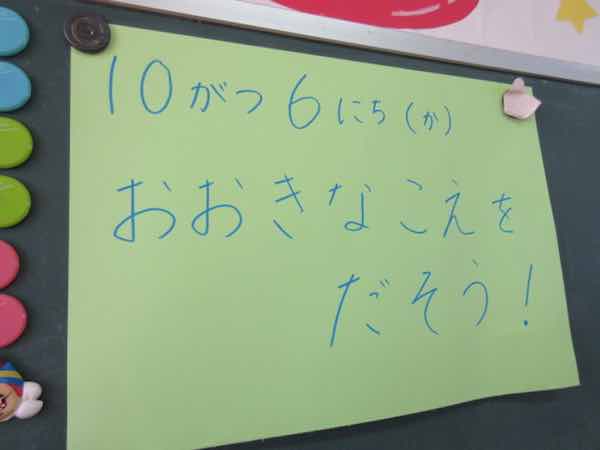 10がつ6にち(か)
おおきなこえを
だそう!